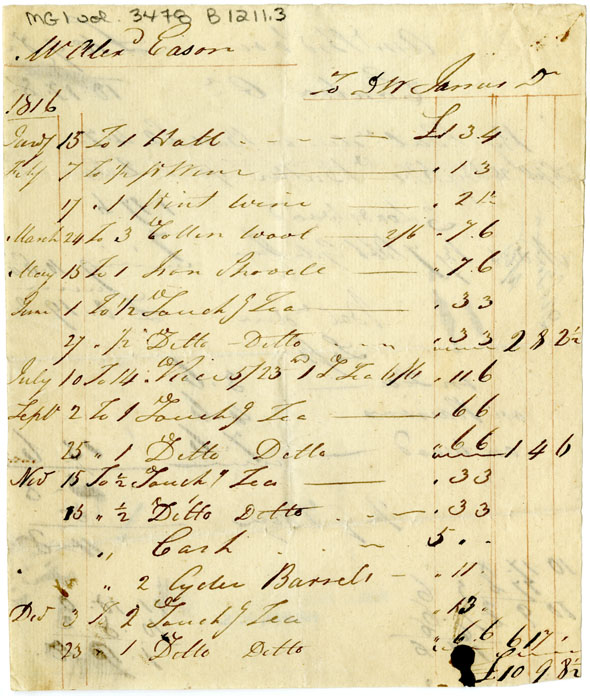 MG1 vol. 3478 B1211.3
Mr Alexd Eason
To J W Jarvis Dr
1816
Jany 15 To 1 Hatt £1 3.4
Feby 7 To ½ pt Wine " 1 3
17 " 1 Pint Wine " 2 1½
March 24 To 3 Cotton Wool 2/6 " 7.6
May 15 To 1 Iron Shovell " 7.6
June 1 To ½ Souchg Tea " 3 3
27 " ½ Ditto - Ditto " 3 3 2 8 2½
July 10 To 14 Rice 1 Tea " 11 6
Septr 2 To 1 Souchg Tea " 6 6
25 " 1 Ditto Ditto " 6 6 1 4 6
Nov 15 To ½ Souchg Tea " 3 3
15 " ½ Ditto Ditto " 3 3
" Cash 5 " "
" 2 Cyder Barrels " 11 "
Dec 3 To 2 Souchg Tea " 13 "
23 " 1 Ditto Ditto " 6.6 6 17 "
£10 9 8½